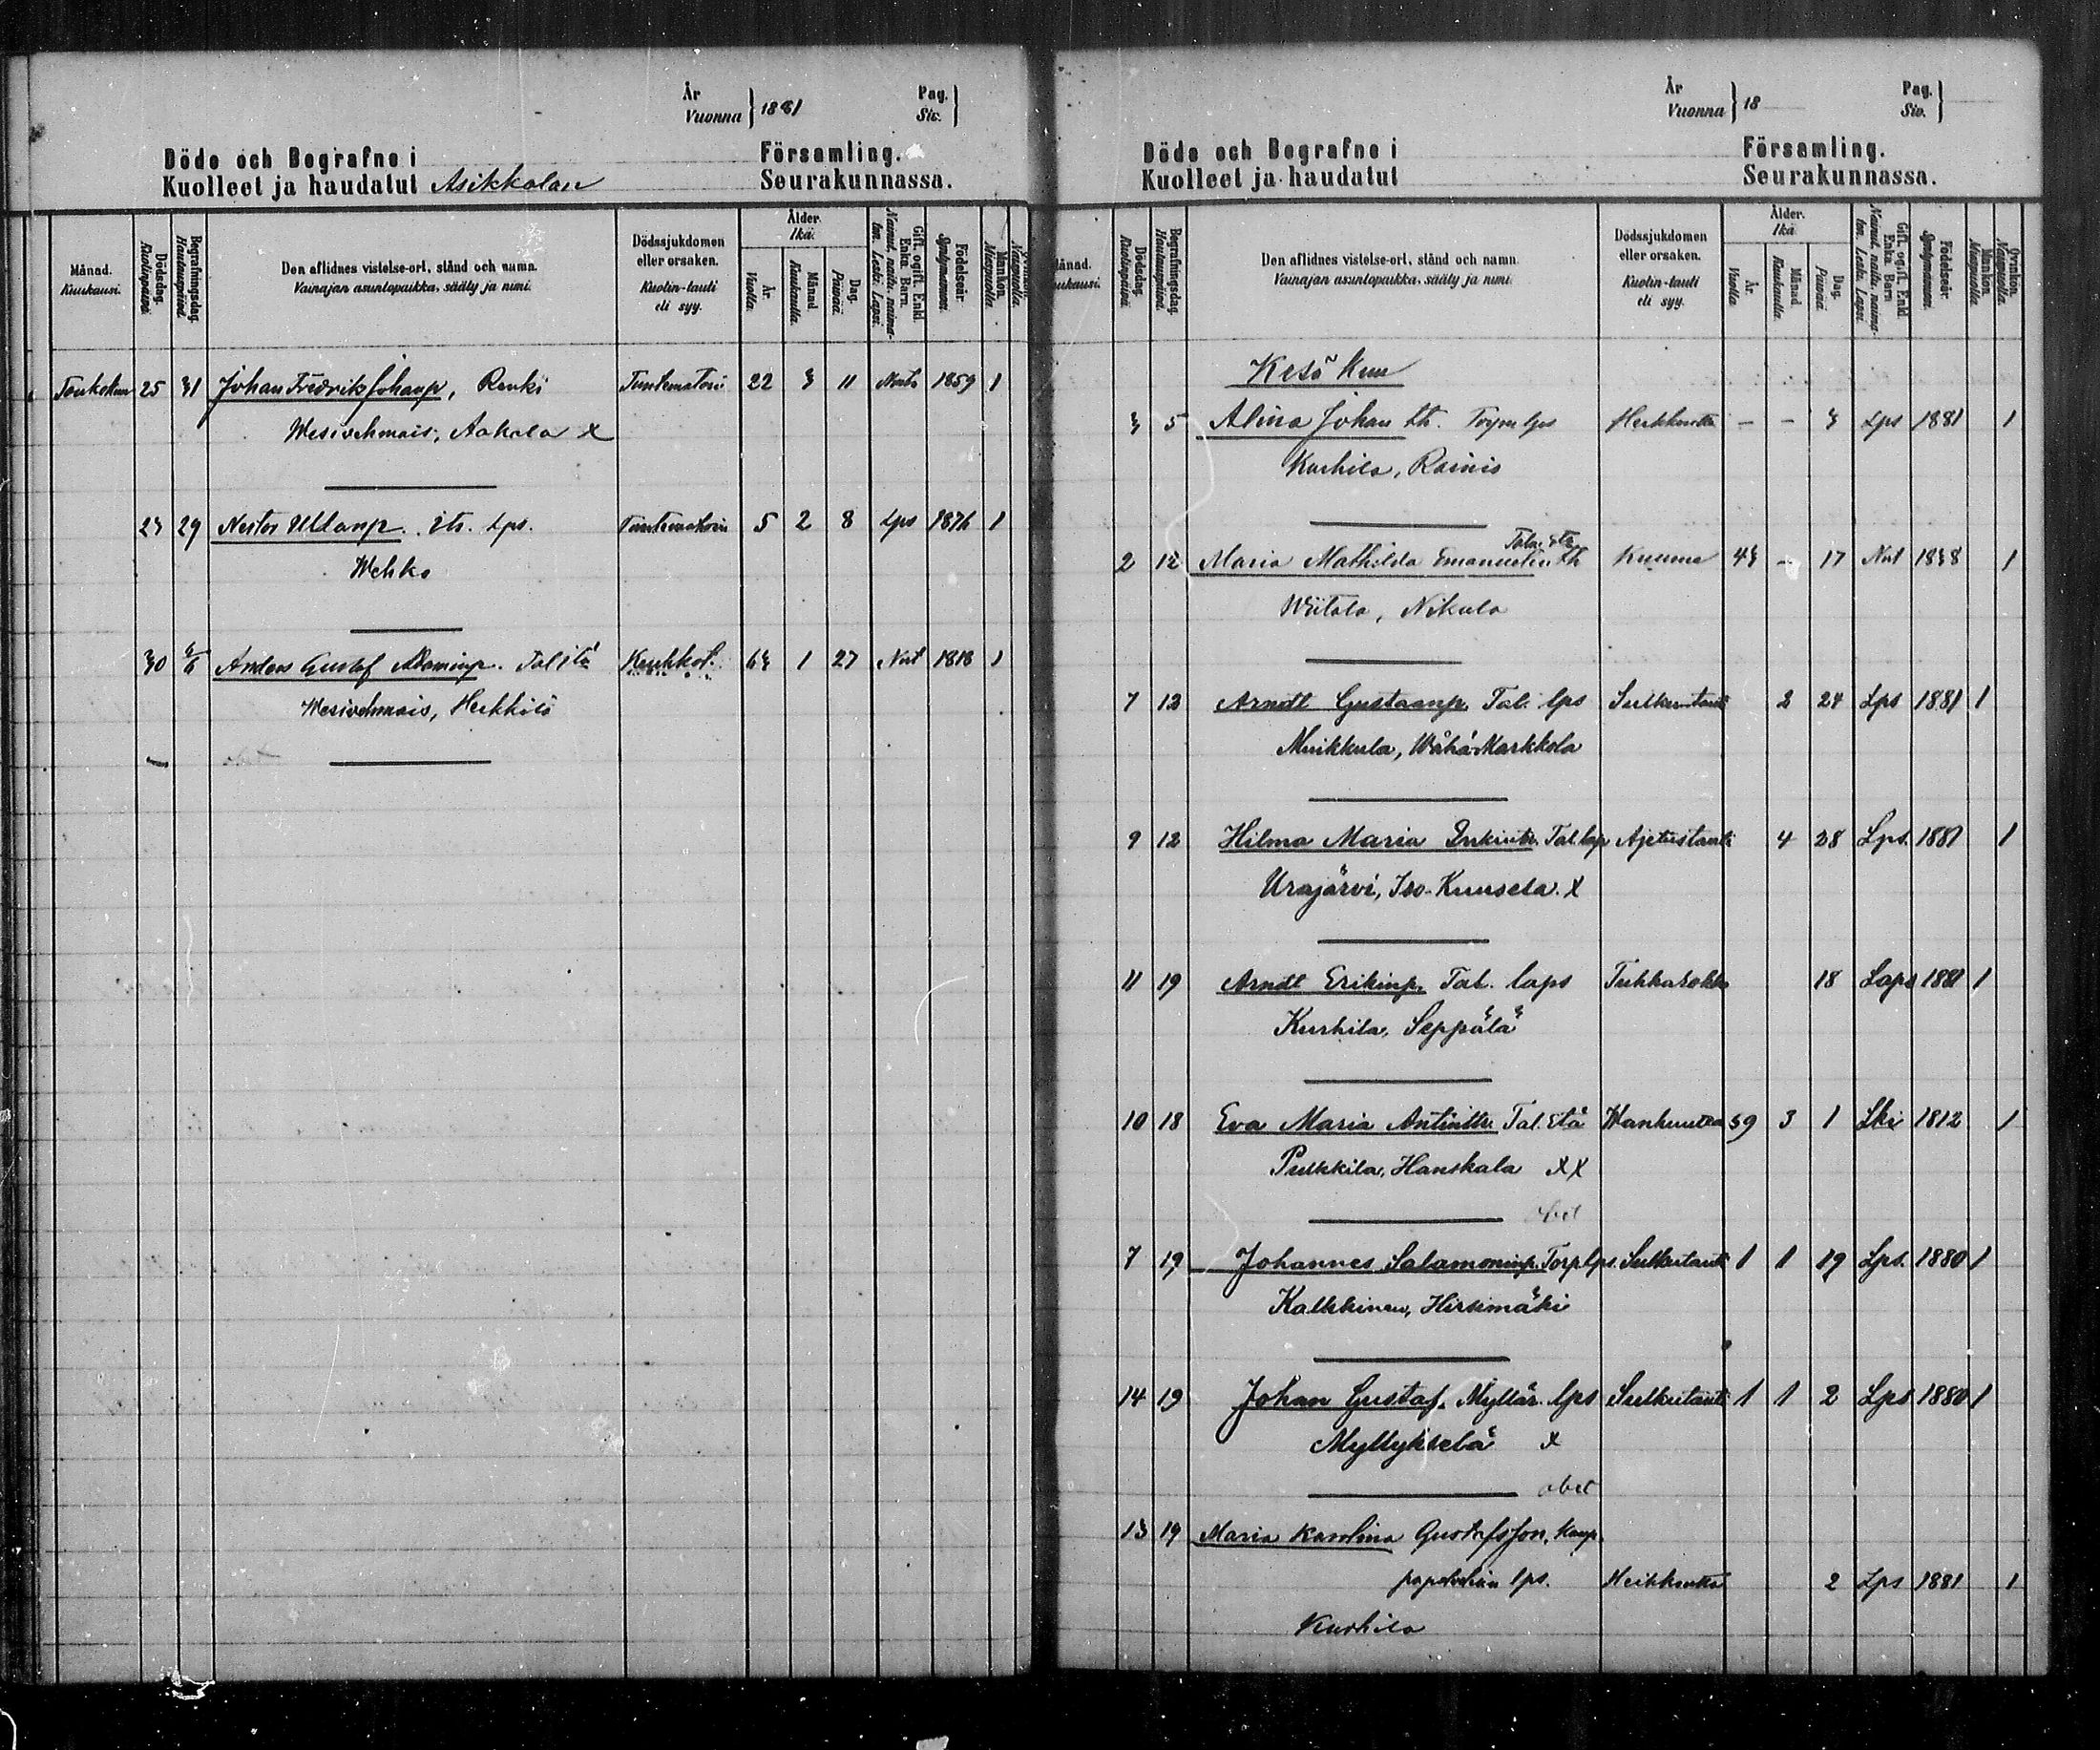 År
Vuonna } 1881 Pag.
Siv. }
Döde och Begrafne i Församling.
Kuolleet ja haudatut Asikkolan Seurakunnassa.
Månad. Kuukausi. Dödsdag. Kuolinpäivä. Begrafningsdag. Hautauspäivä. Den aflidnes vistelse-ort, stånd och namn. Vainajan asuntopaikka, sääty ja nimi. Dödssjukdomen eller orsaken. Kuolin-tauti eli syy. Ålder. Ikä. År. Vuotta. Månad. Kuukautta. Dag. Päivää. Gift, ogift. Enkl. Enka. Barn. Nainut, naitu, naimaton. Leski. Lapsi. Födelseår. Syntymävuosi. Mankön. Miespuolia. Naispuolia.
Toukokuu 25 31 Johan Fredrik Johanp, Renki Tuntematoin 22 3 11 1859 1
Wesivehmais, Aakala x
23 29 Nestor Ullanp. Its. Lps. Tuntematoin 5 2 8 Lps 1876 1
Wehko
30 6/6 Anders Gustaf Adaminp. Tal itä Keuhkot. 63 1 27 Nut 1818 1
Wesivehmais, Heikkilä
År
Vuonna } 18 Pag.
Siv. }
Döde och Begrafne i Församling.
Kuolleet ja haudatut Seurakunnassa.
Månad. Kuukausi. Dödsdag. Kuolinpäivä. Begrafningsdag. Hautauspäivä. Den aflidnes vistelse-ort, stånd och namn. Vainajan asuntopaikka, sääty ja nimi. Dödssjukdomen eller orsaken. Kuolin-tauti eli syy. Ålder. Ikä. År. Vuotta. Månad. Kuukautta. Dag. Päivää. Gift, ogift. Enkl. Enka. Barn Nainut, naitu, naimaton. Leski. Lapsi. Födelseår. Syntymävuosi. Mankön. Miespuolia. Qvinkön. Naispuolia.
Kesä Kuu
3 5 Alina Johan tr. lps Heikkoutta - - 3 Lps 1881 1
Kurhila, Rainio
2 12 Maria Mathilda Emanuelin tr Kuume 43 - 17 Nut 1838 1
Wiitala, Nikula
7 12 Arndt Gustaanp. Tal. lps Sulkutauti 2 24 Lps 1881 1
Muikkula, Wähä-Markkola
9 12 Hilma Maria Inkintr. Tal. lap Ajetustauti 4 28 Lps. 1881 1
Urajärvi, Iso-Kuusela. x
11 19 Arndt Erikinp. Tal. laps Tuhkarokko 18 Laps 1881 1
Kurhila, Seppälä
10 18 Eva Maria Antinttr. Tal. Etä Wanhuutta 59 3 1 Lki 1812 1
Pulkkila, Hanskala xx
obet
7 19 Johannes Salamoninp. Torp lps. Sulkutauti 1 1 19 Lps. 1880 1
Kalkkinen, Hirsimäki
14 19 Johan Gustaf. Myllär. lps Sulkutauti 1 1 2 Lps 1880 1
Myllykselä x
obet
13 19 Maria Karolina Gustafsson, Kaup.
lps. Heikkoutta 2 Lps 1881 1
Kurhila